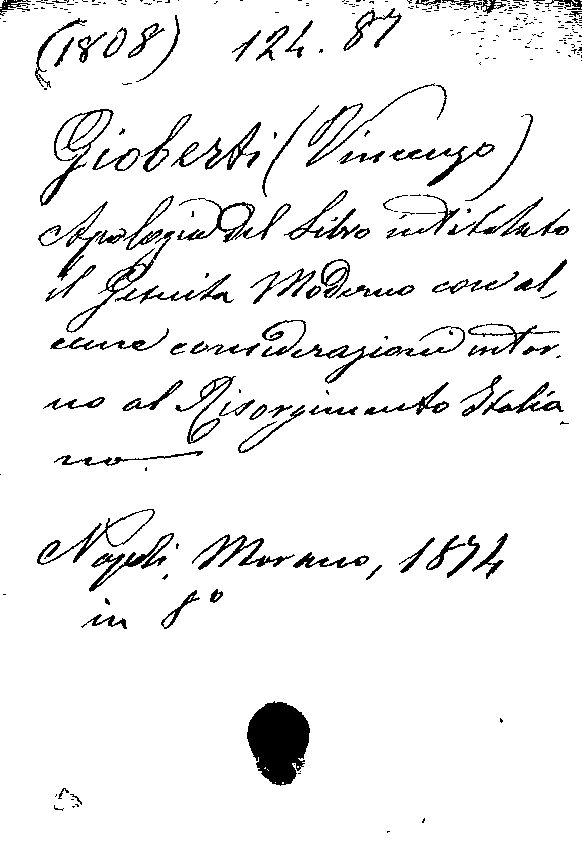 (1808) 124.87
Gioberti (Vincenzo)
Apologia del Libro intitolato
il Gesuita Moderno con al,
cune considerazioni intor.
no al Risorgimento Italia
no.
Napoli, Morano, 1874
in 8°